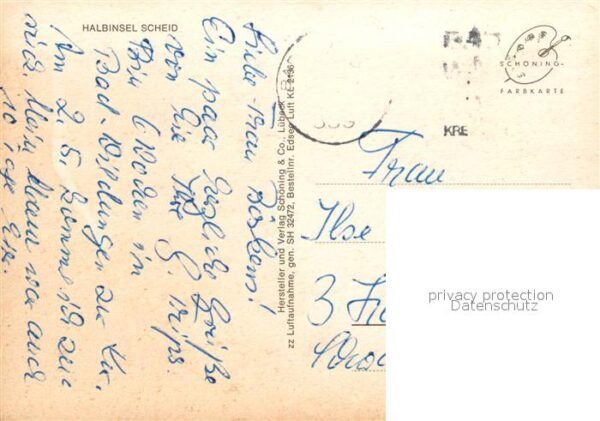 HALBINSEL SCHEID
Liebe Frau
Ein paar herzliche Grüße
von Ihre G. Trips.
Bin 6 Wochen in
Bad Wildungen zur Kur.
Am 2. 5. komme ich zu-
rück. Mein Mann war auch
10 Tage hier.
Hersteller und Verlag Schöning & Co., Lübeck
zz Luftaufnahme, gen. SH 32472, Bestellnr. Edsee Luft KE
SCHÖNING-
FARBKARTE
KRE
Frau
Ilse
3
privacy protection
Datenschutz